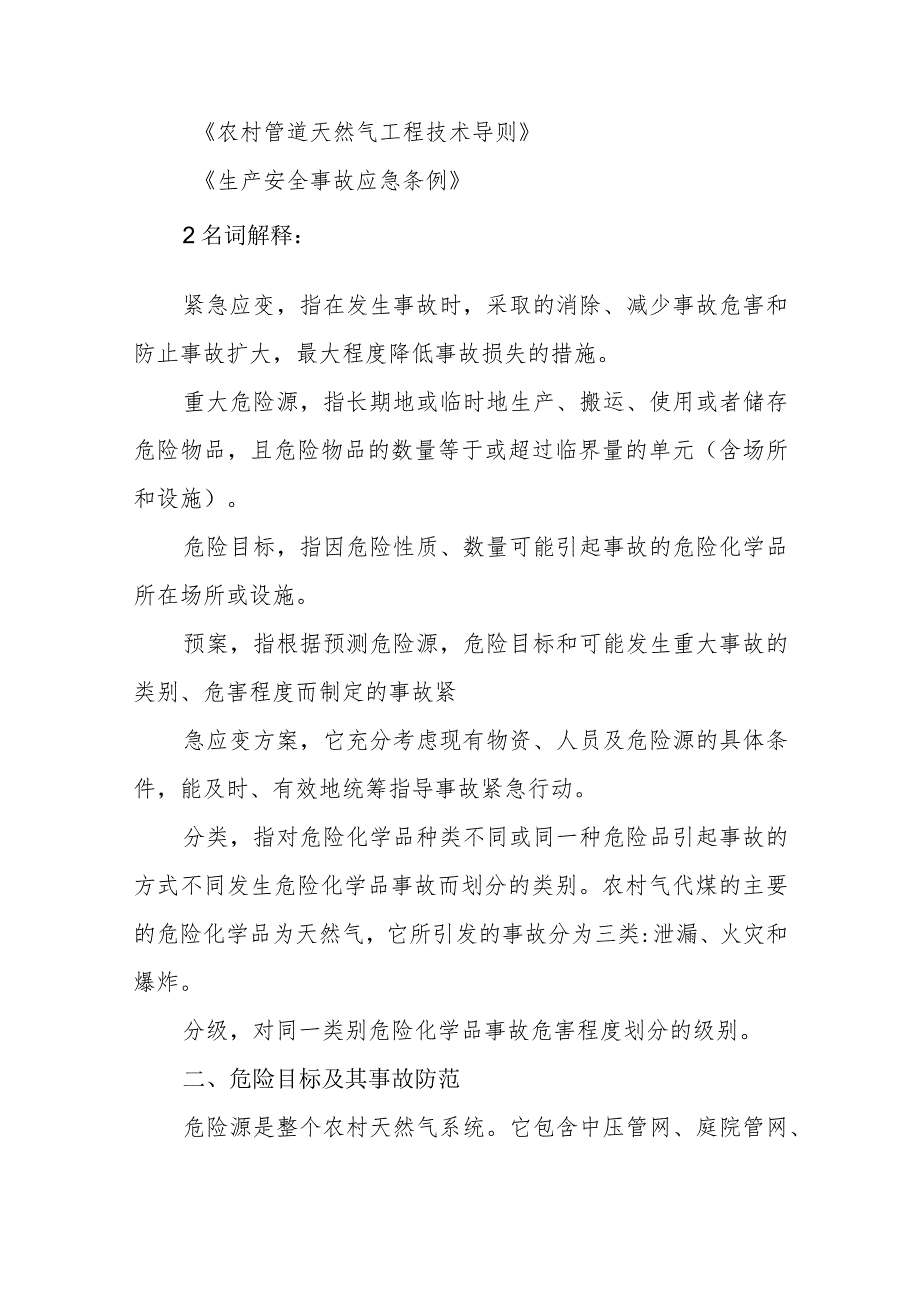 《农村管道天然气工程技术导则》
《生产安全事故应急条例》
2 名词解释：
紧急应变，指在发生事故时，采取的消除、减少事故危害和
防止事故扩大，最大程度降低事故损失的措施。
重大危险源，指长期地或临时地生产、搬运、使用或者储存
危险物品，且危险物品的数量等于或超过临界量的单元（含场所
和设施）。
危险目标，指因危险性质、数量可能引起事故的危险化学品
所在场所或设施。
预案，指根据预测危险源，危险目标和可能发生重大事故的
类别、危害程度而制定的事故紧
急应变方案，它充分考虑现有物资、人员及危险源的具体条
件，能及时、有效地统筹指导事故紧急行动。
分类，指对危险化学品种类不同或同一种危险品引起事故的
方式不同发生危险化学品事故而划分的类别。农村气代煤的主要
的危险化学品为天然气，它所引发的事故分为三类:泄漏、火灾和
爆炸。
分级，对同一类别危险化学品事故危害程度划分的级别。
二、危险目标及其事故防范
危险源是整个农村天然气系统。它包含中压管网、庭院管网、